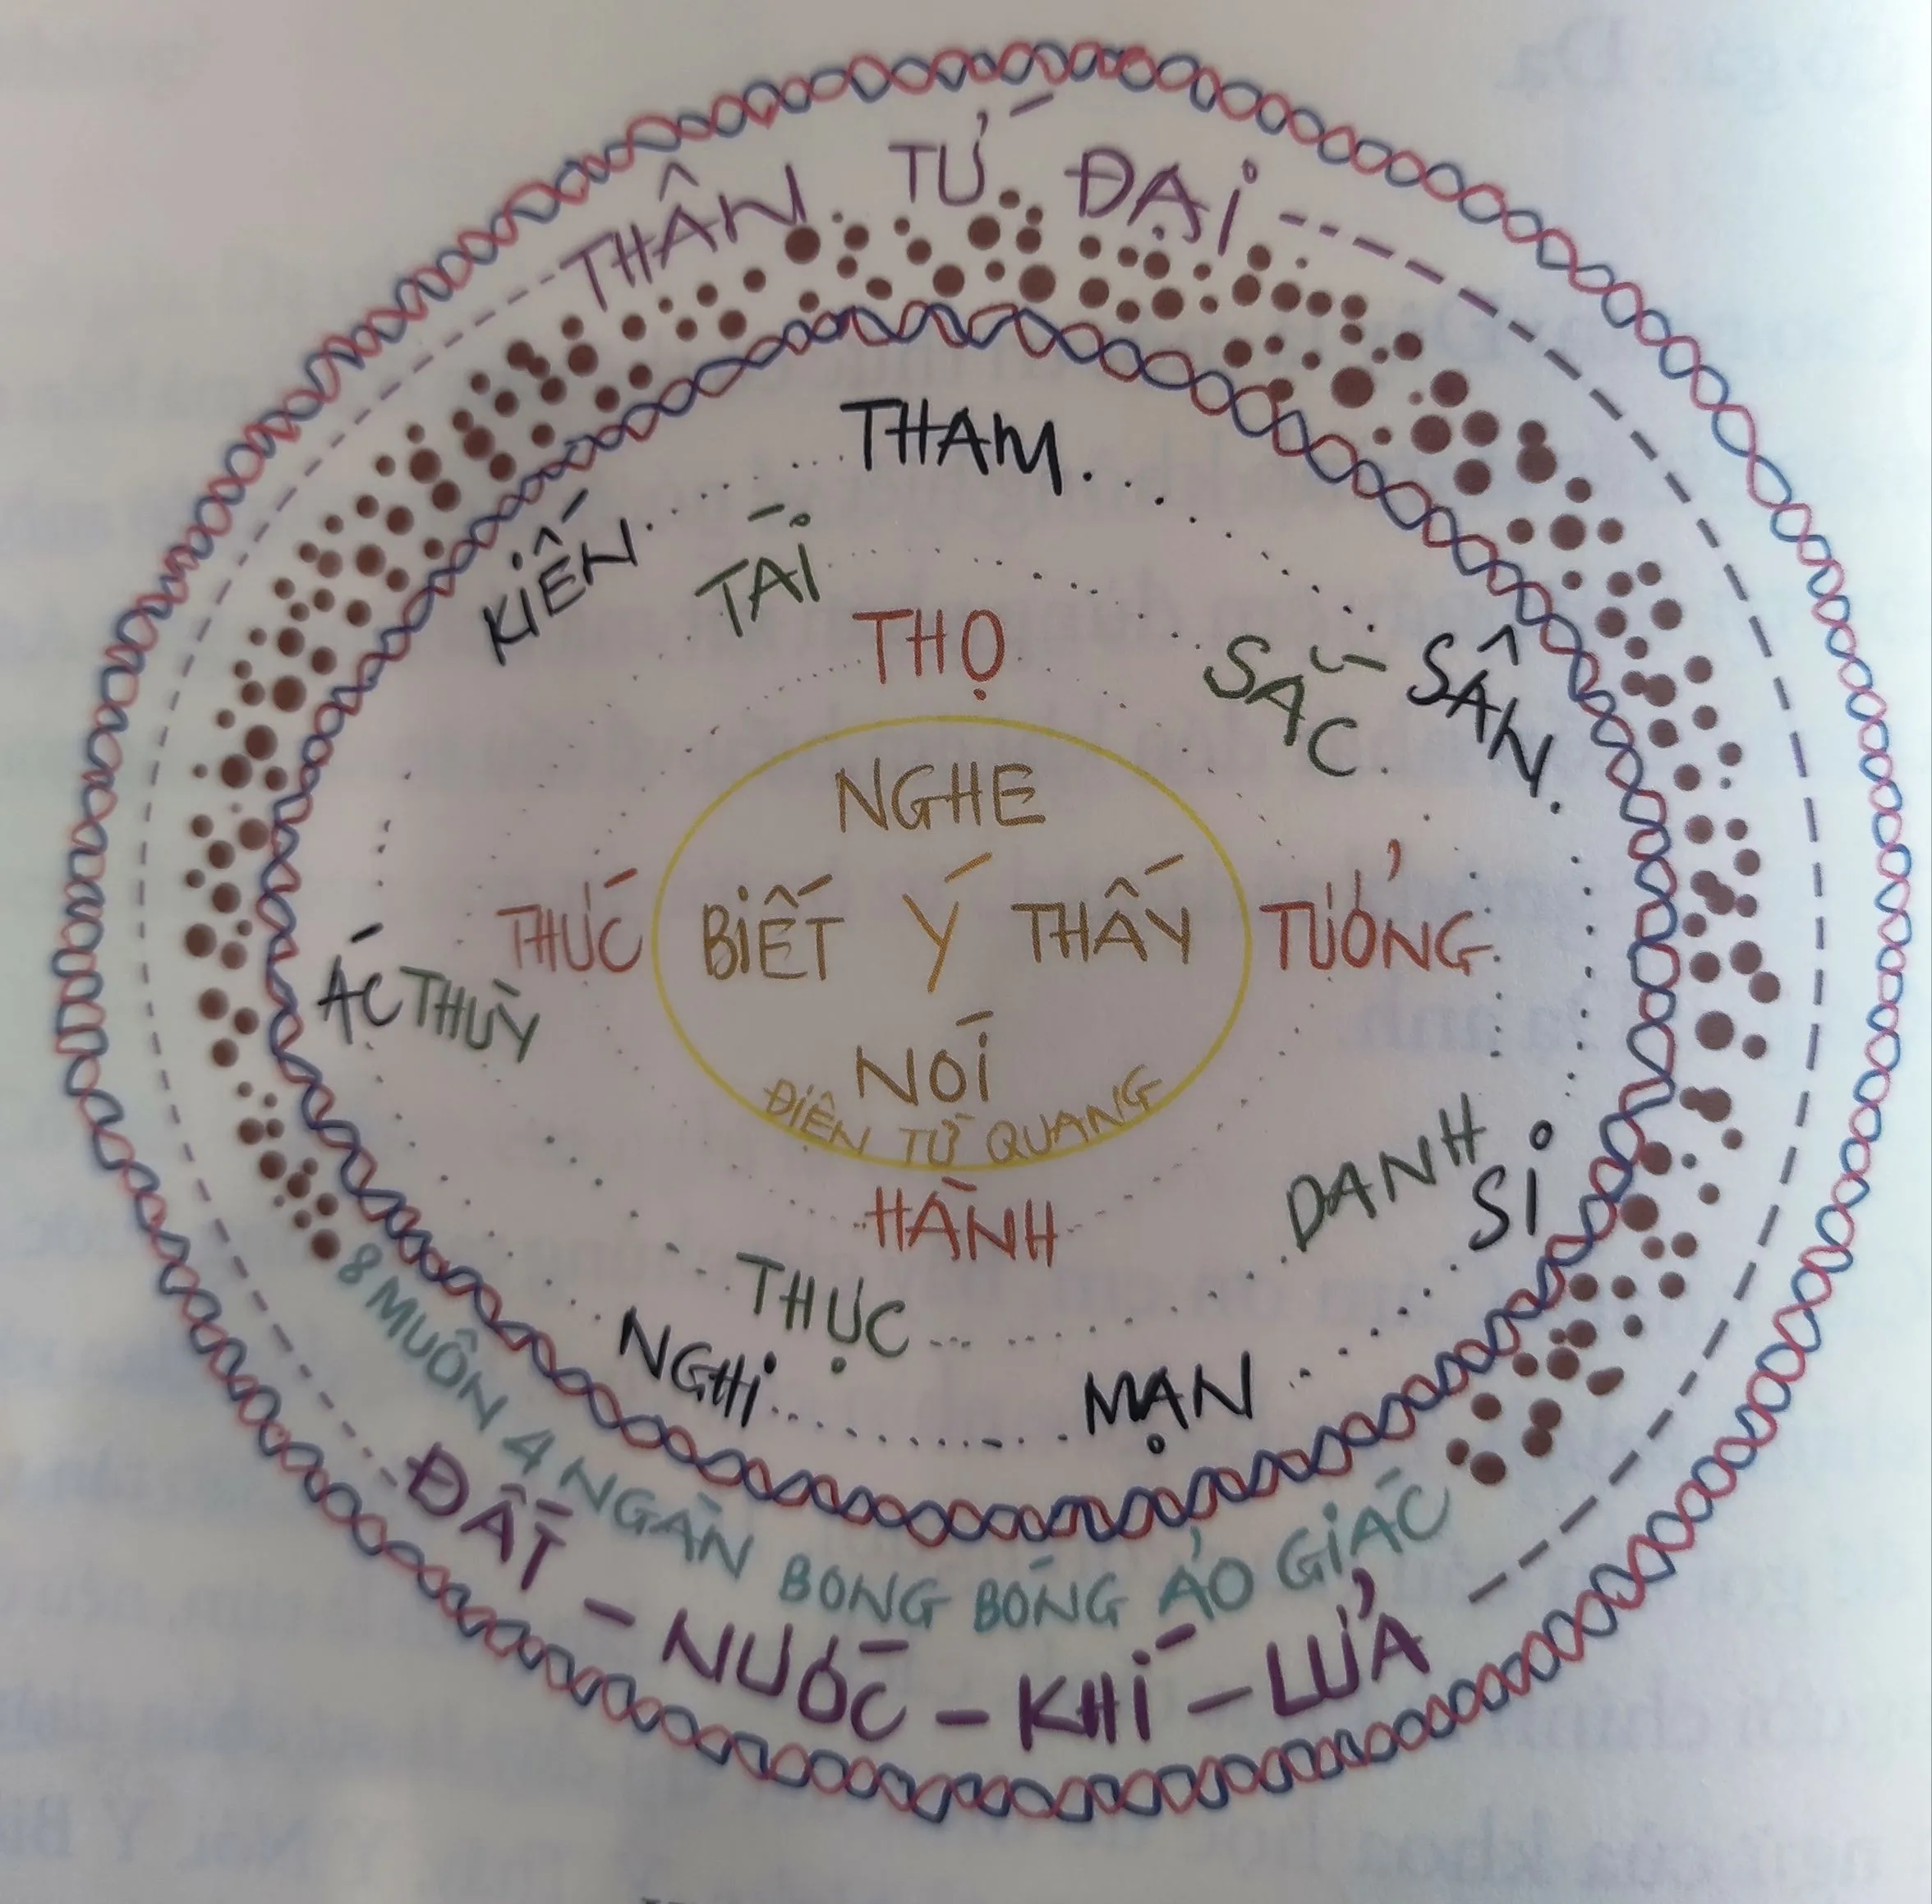 THÂN TỨ ĐẠI
THAM
KIẾN
TÀI
THỌ
SẮC
SÂN
NGHE
THỨC
BIẾT Ý THẤY
TƯỞNG
ÁC
THÙY
NÓI
ĐIỆN TỪ QUANG
DANH
SI
HÀNH
THỰC
NGHI
MẠN
8 MUÔN 4 NGÀN BONG BÓNG ẢO GIÁC
ĐẤT - NƯỚC - KHÍ - LỬA